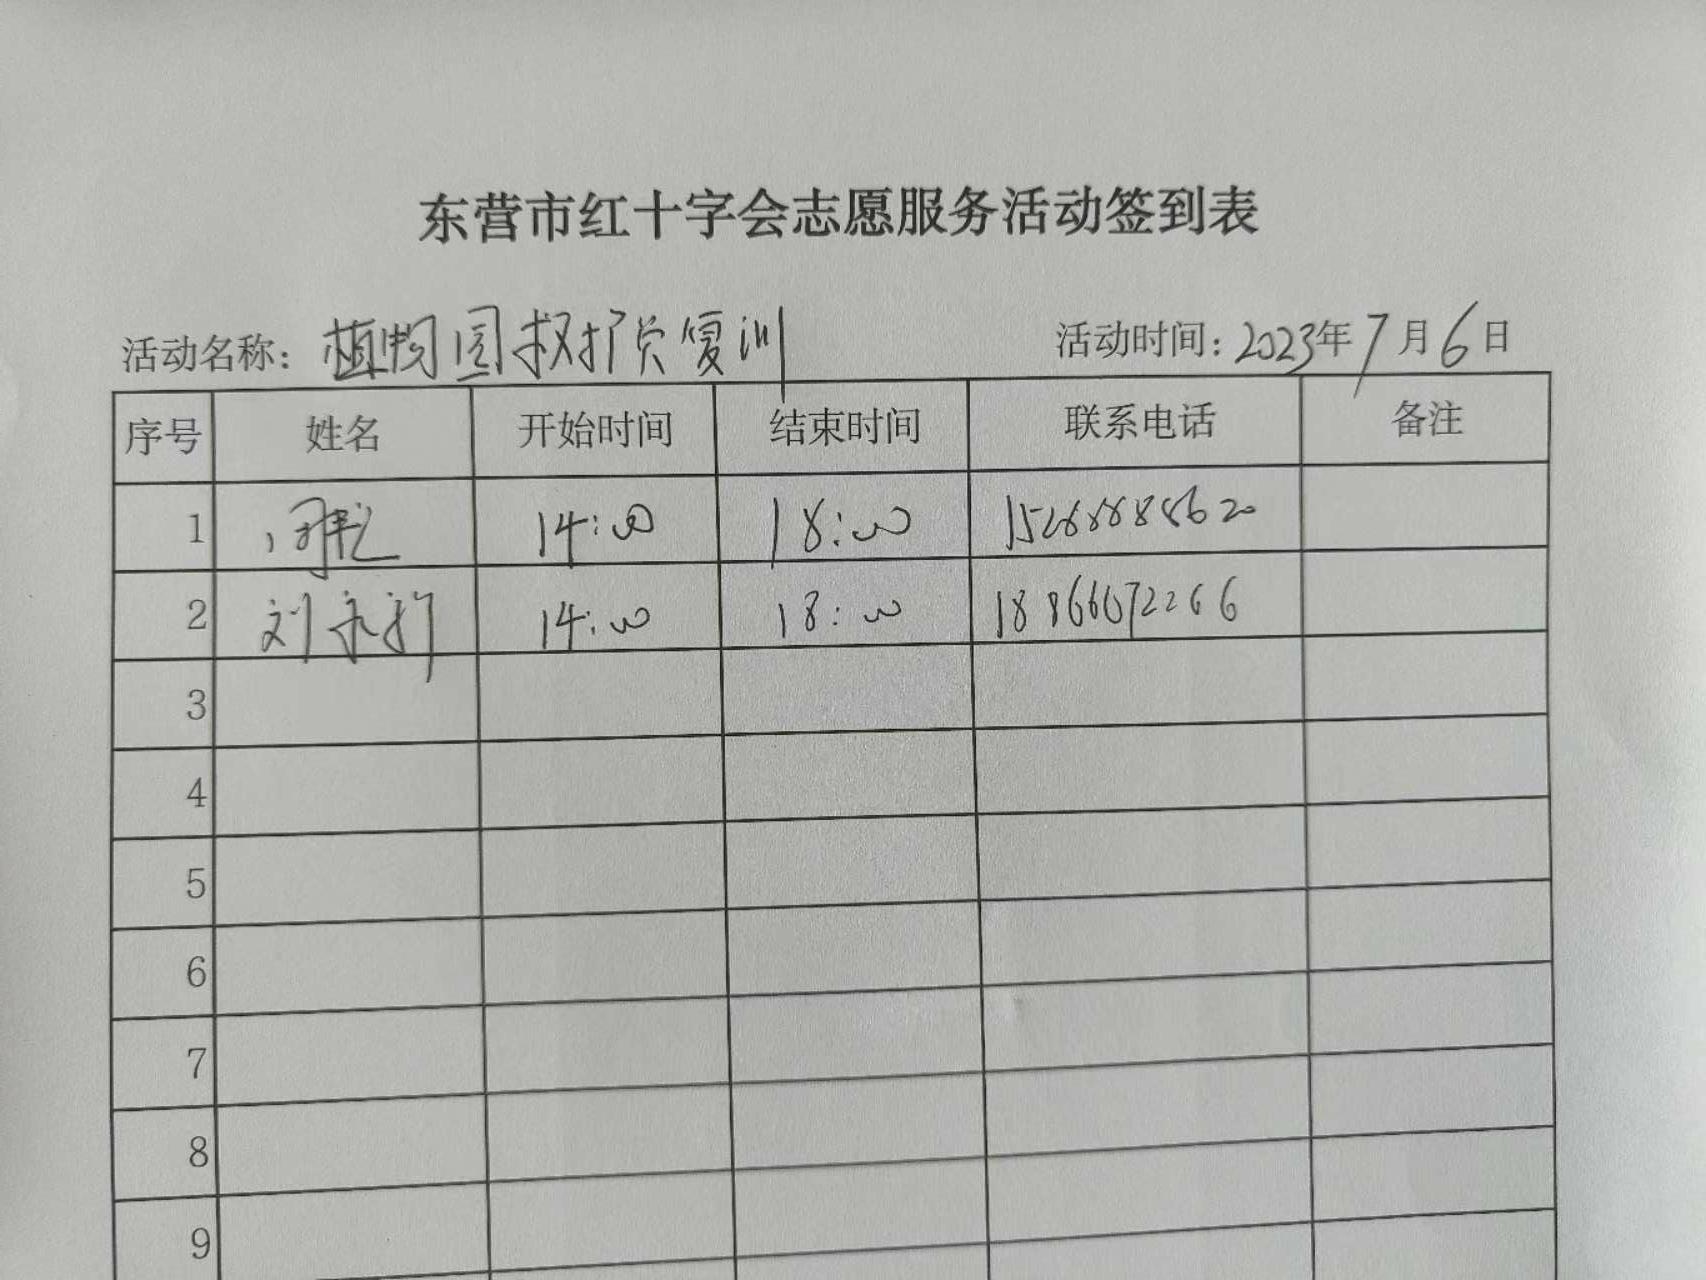 东营市红十字会志愿服务活动签到表
活动名称: 植物园救护员复训 活动时间: 2023年7月6日
序号 姓名 开始时间 结束时间 联系电话 备注
1 14:00 18:00 15268888620
2 刘永 14:00 18:00 18866072266
3
4
5
6
7
8
9